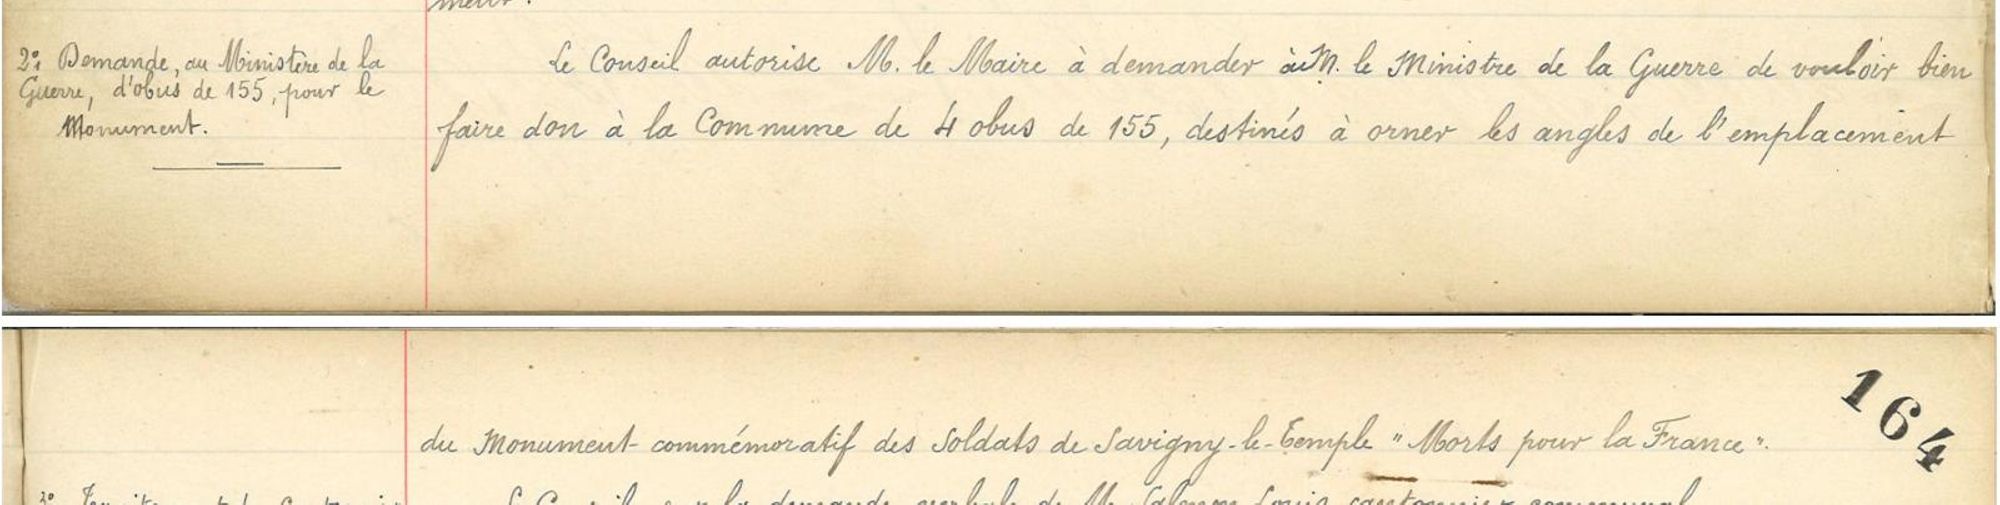 2º; Demande, au Ministère de la
Guerre, d'obus de 155, pour le
Monument.
Le Conseil autorise M. le Maire à demander à M. le Ministre de la Guerre de vouloir bien
faire don à la Commune de 4 obus de 155, destinés à orner les angles de l'emplacement
164
du Monument commémoratif des Soldats de Savigny-le-Temple "Morts pour la France".
Le Conseil, sur la demande verbale de M. Salmon Louis, cantonnier communal